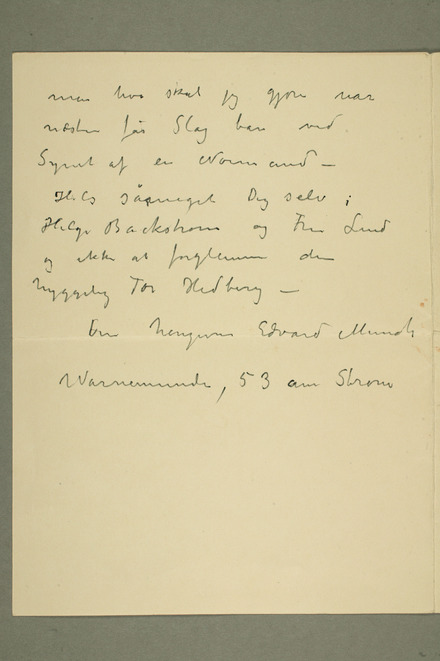 men hva skal jeg gjøre når
næsten får Slag bare ved
Synet af en Normand –
Hils såmeget Dig selv i
Helge Backstrøm og Fru Lind
og ikke at forglemme den
hyggelig Tor Hedberg –
Din hengivne Edvard Munch
Warnemunde, 53 am Strom